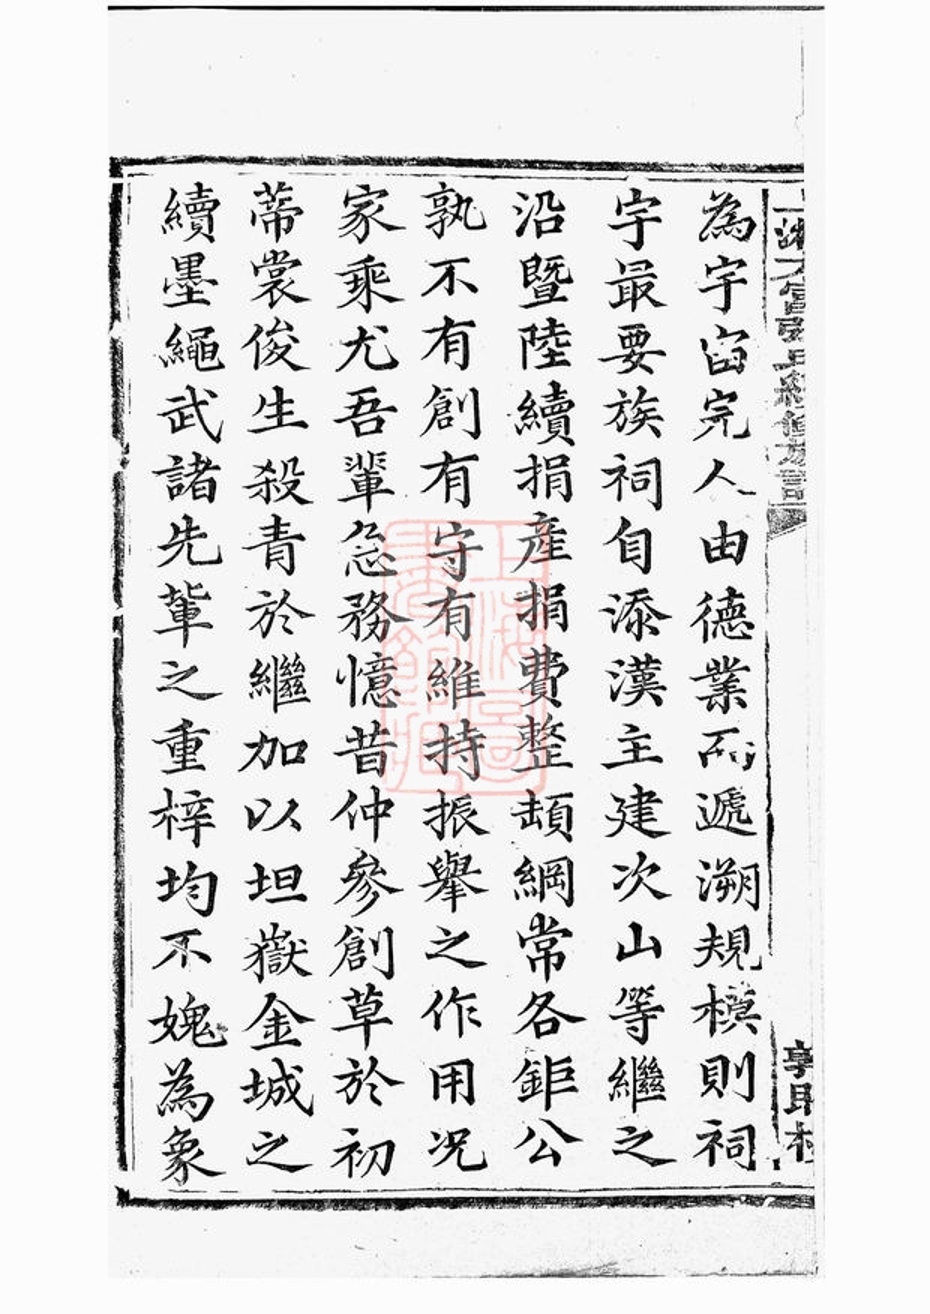 為宇宙完人由德業而遞溯規模則祠
宇最要族祠自添漢主建次山等繼之
沿暨陸續捐產捐費整頓綱常各鉅公
孰不有創有守有維持振舉之作用况
家乘尤吾輩急務憶昔仲參創草於初
蒂裳俊生殺青於繼加以坦嶽金城之
續墨繩武諸先輩之重梓均不媿為象
上海圖書館藏